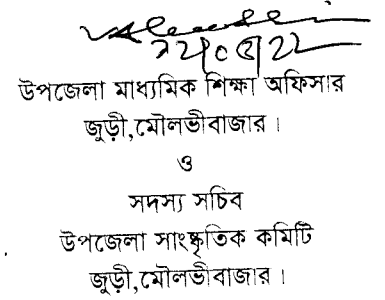 উপজেলা মাধ্যমিক শিক্ষা অফিসার
জুড়ী,মৌলভীবাজার।
ও
সদস্য সচিব
উপজেলা সাংস্কৃতিক কমিটি
জুড়ী,মৌলভীবাজার।